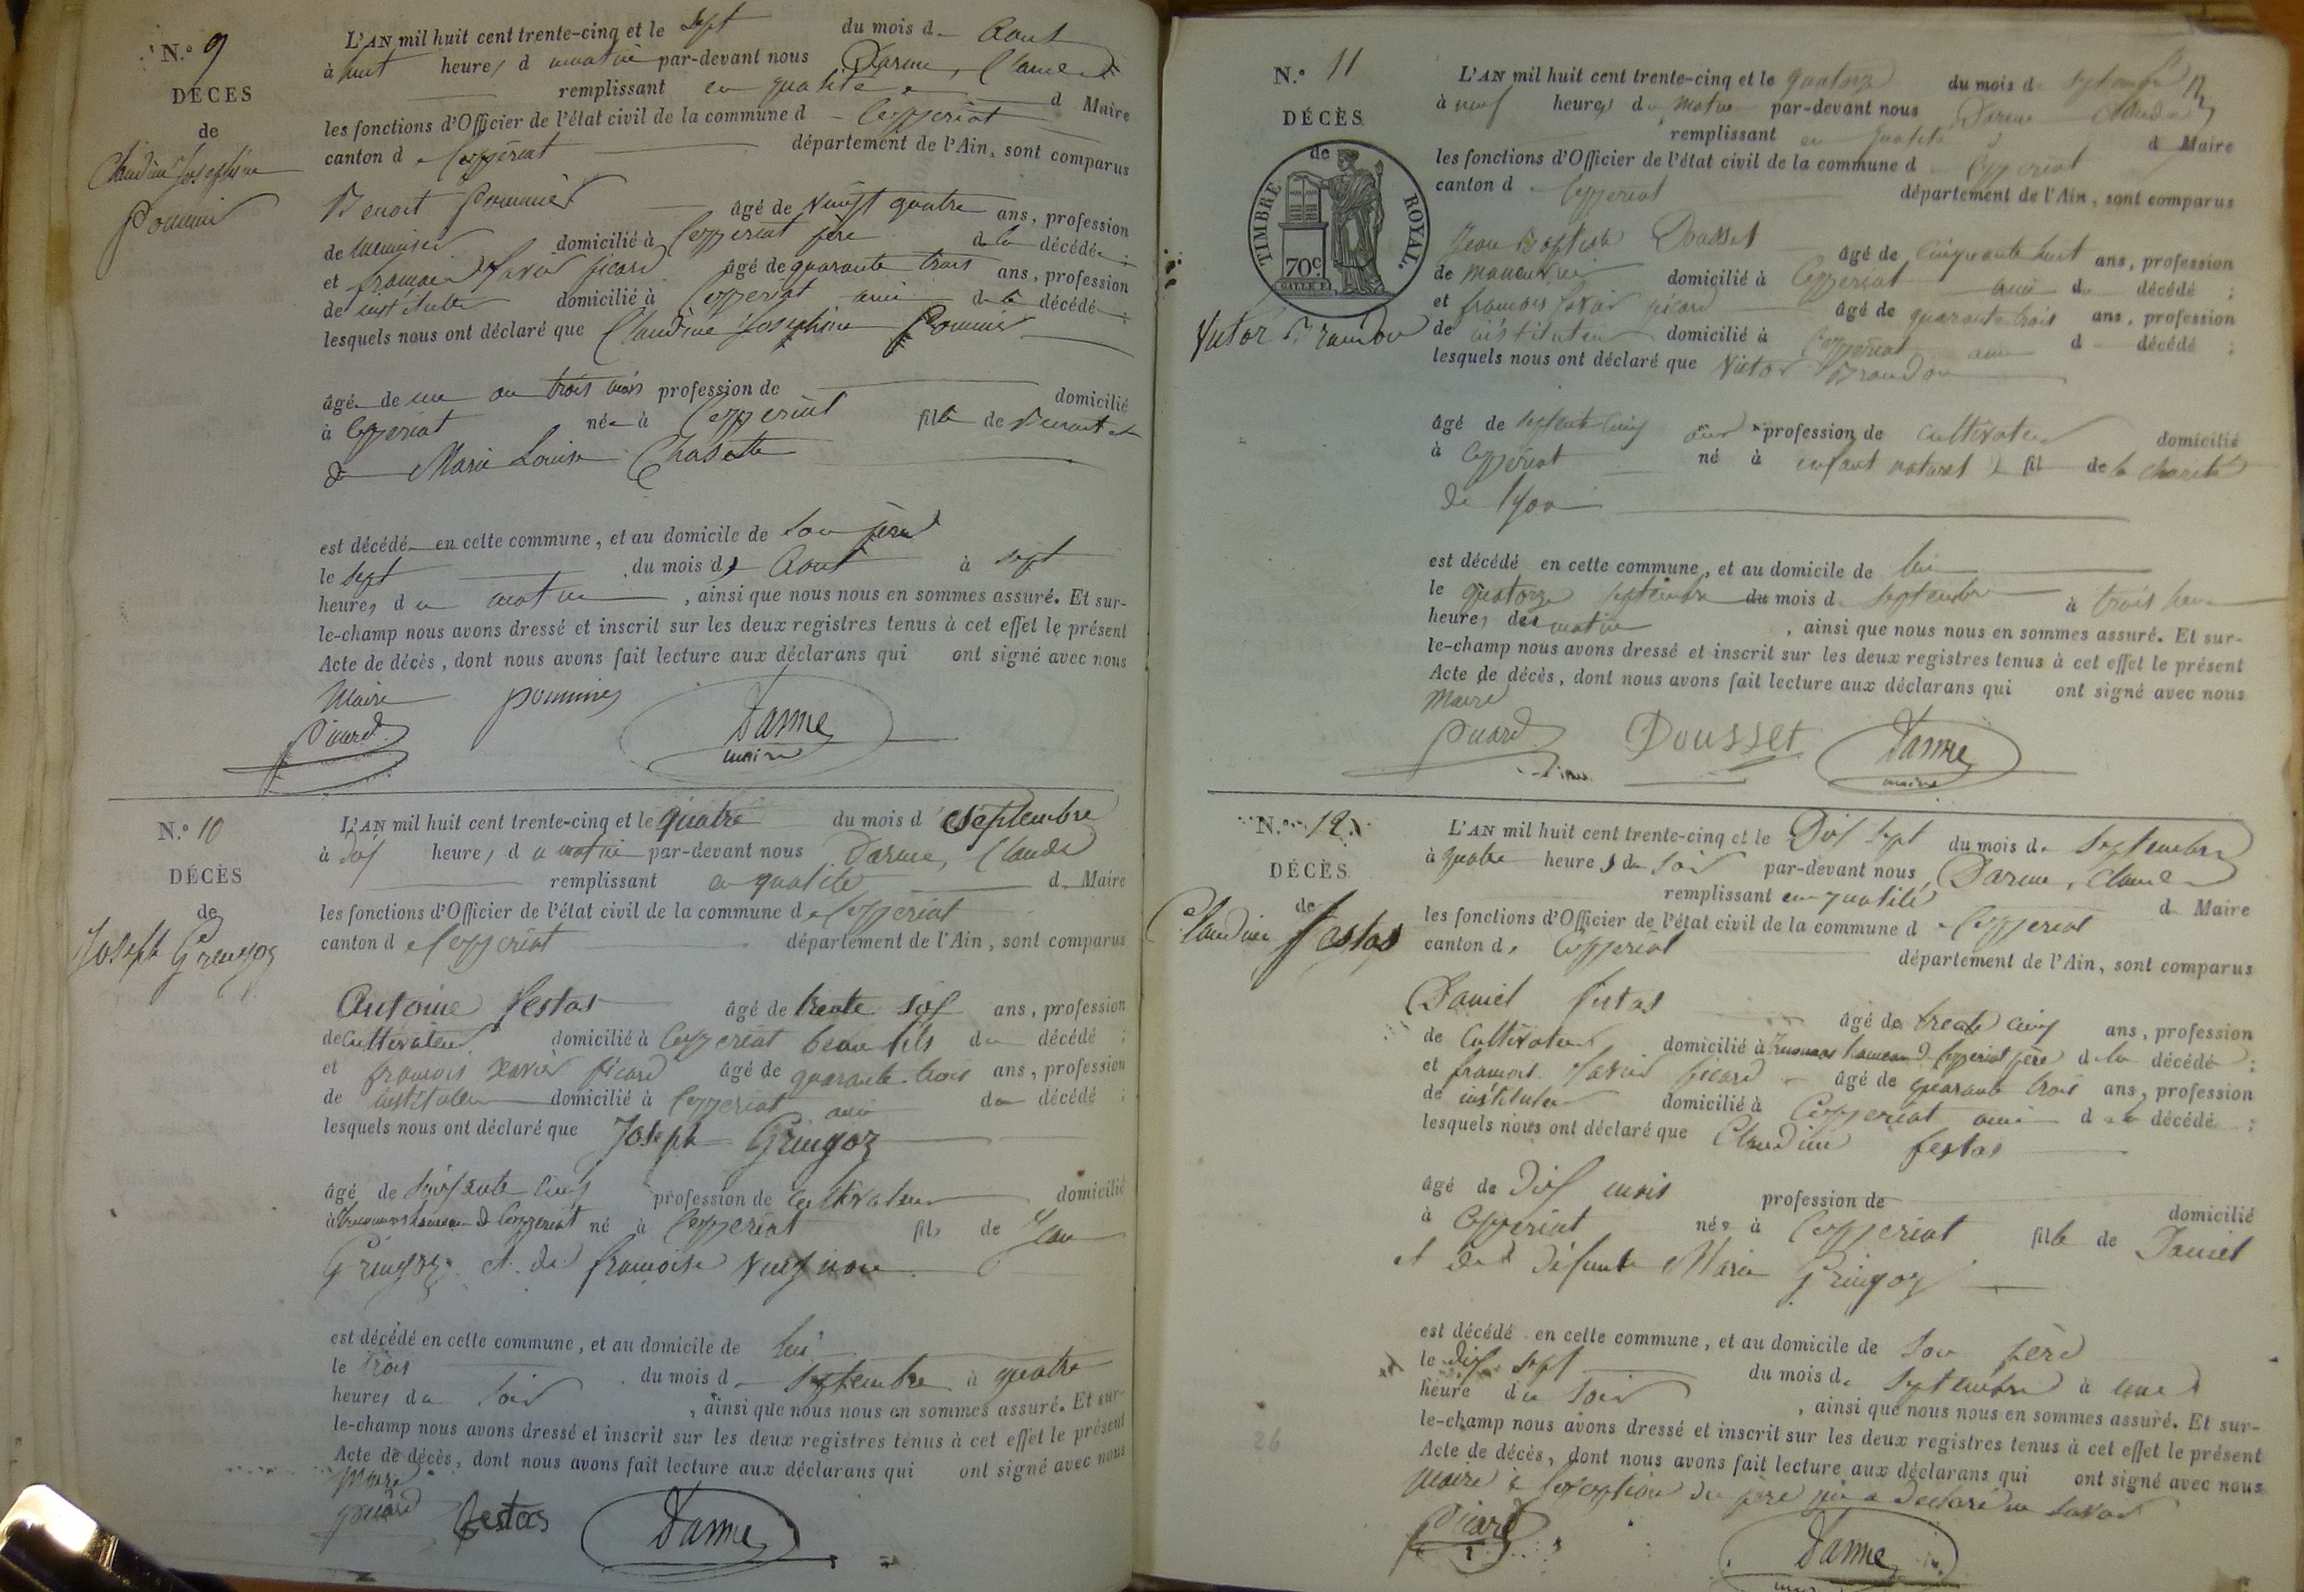 N.º 9
DÉCES
de
Claudine Josephine
Pommier
L'AN mil huit cent trente-cinq et le sept du mois d Aout
à huit heures d u matin par-devant nous Darme, Claude
remplissant en qualité d Maire
les fonctions d'Officier de l'état civil de la commune d Ceyzeriat
canton d Ceyzeriat département de l'Ain, sont comparus
Benoit Pommier âgé de vingt quatre ans, profession
de menuisier domicilié à Ceyzeriat père de la décédée ;
et francois Xavier picard âgé de quarante trois ans, profession
de instituteur domicilié à Ceyzeriat ami de la décédée ;
lesquels nous ont déclaré que Claudine Josephine Pommier
âgée de un an trois mois profession de domicilié
à Ceyzeriat née à Ceyzeriat fille de Benoit et
de Marie Louise
est décédée en cette commune, et au domicile de son père
le sept du mois d Aout à sept
heures d u matin , ainsi que nous nous en sommes assuré. Et sur-
le-champ nous avons dressé et inscrit sur les deux registres tenus à cet effet le présent
Acte de décès, dont nous avons fait lecture aux déclarans qui ont signé avec nous
Maire pommier
Picard Darme
maire
N.º 10
DÉCÈS
de
Joseph Gringoz
L'AN mil huit cent trente-cinq et le quatre du mois d septembre
à dix heures d u matin par-devant nous Darme, Claude
remplissant en qualité d Maire
les fonctions d'Officier de l'état civil de la commune d Ceyzeriat
canton d Ceyzeriat département de l'Ain, sont comparus
Antoine festas âgé de trente six ans, profession
de cultivateur domicilié à Ceyzeriat beau fils du décédé ;
et francois xavier picard âgé de quarante trois ans, profession
de instituteur domicilié à Ceyzeriat ami du décédé ;
lesquels nous ont déclaré que Joseph Gringoz
âgé de soixante cinq profession de cultivateur domicilié
à hameau de Ceyzeriat né à Ceyzeriat fils de Jean
Gringoz et de francoise
est décédé en cette commune, et au domicile de lui
le trois du mois d septembre à quatre
heures du soir , ainsi que nous nous en sommes assuré. Et sur-
le-champ nous avons dressé et inscrit sur les deux registres tenus à cet effet le présent
Acte de décès, dont nous avons fait lecture aux déclarans qui ont signé avec nous
Maire
picard festas Darme
N.º 11
DÉCÈS
de
TIMBRE ROYAL.
70c
Victor Brandon
L'AN mil huit cent trente-cinq et le quatorze du mois de septembre
à neuf heures du matin par-devant nous Darme Claude
remplissant en qualité d Maire
les fonctions d'Officier de l'état civil de la commune d Ceyzeriat
canton d Ceyzeriat département de l'Ain, sont comparus
Jean Baptiste Dousset âgé de cinquante huit ans, profession
de manouvrier domicilié à Ceyzeriat ami du décédé ;
et francois xavier picard âgé de quarante trois ans, profession
de instituteur domicilié à Ceyzeriat ami d décédé ;
lesquels nous ont déclaré que Victor Brandon
âgé de septente cinq ans profession de cultivateur domicilié
à Ceyzeriat né à enfant naturel fil de la charité
de lyon
est décédé en cette commune, et au domicile de lui
le quatorze septembre du mois d septembre à trois
heures du matin , ainsi que nous nous en sommes assuré. Et sur-
le-champ nous avons dressé et inscrit sur les deux registres tenus à cet effet le présent
Acte de décès, dont nous avons fait lecture aux déclarans qui ont signé avec nous
Maire
picard Dousset Darme
maire
N.º 12
DÉCÈS
de
Claudine festas
L'AN mil huit cent trente-cinq et le Dix sept du mois de septembre
à quatre heures du soir par-devant nous Darme, Claude
remplissant en qualité d Maire
les fonctions d'Officier de l'état civil de la commune d Ceyzeriat
canton d Ceyzeriat département de l'Ain, sont comparus
Daniel festas âgé de trente cinq ans, profession
de cultivateur domicilié à hameau d Ceyzeriat père de la décédée ;
et francois xavier picard âgé de quarante trois ans, profession
de instituteur domicilié à Ceyzeriat ami de la décédée ;
lesquels nous ont déclaré que Claudine festas
âgé de Dix mois profession de domicilié
à Ceyzeriat née à Ceyzeriat fille de Daniel
et de défunte Marie Gringoz
est décédé en cette commune, et au domicile de son père
le dix sept du mois de septembre à une
heure du soir , ainsi que nous nous en sommes assuré. Et sur-
le-champ nous avons dressé et inscrit sur les deux registres tenus à cet effet le présent
Acte de décès, dont nous avons fait lecture aux déclarans qui ont signé avec nous
Maire à l'exception du père qui a déclaré ne savoir
Picard Darme
26